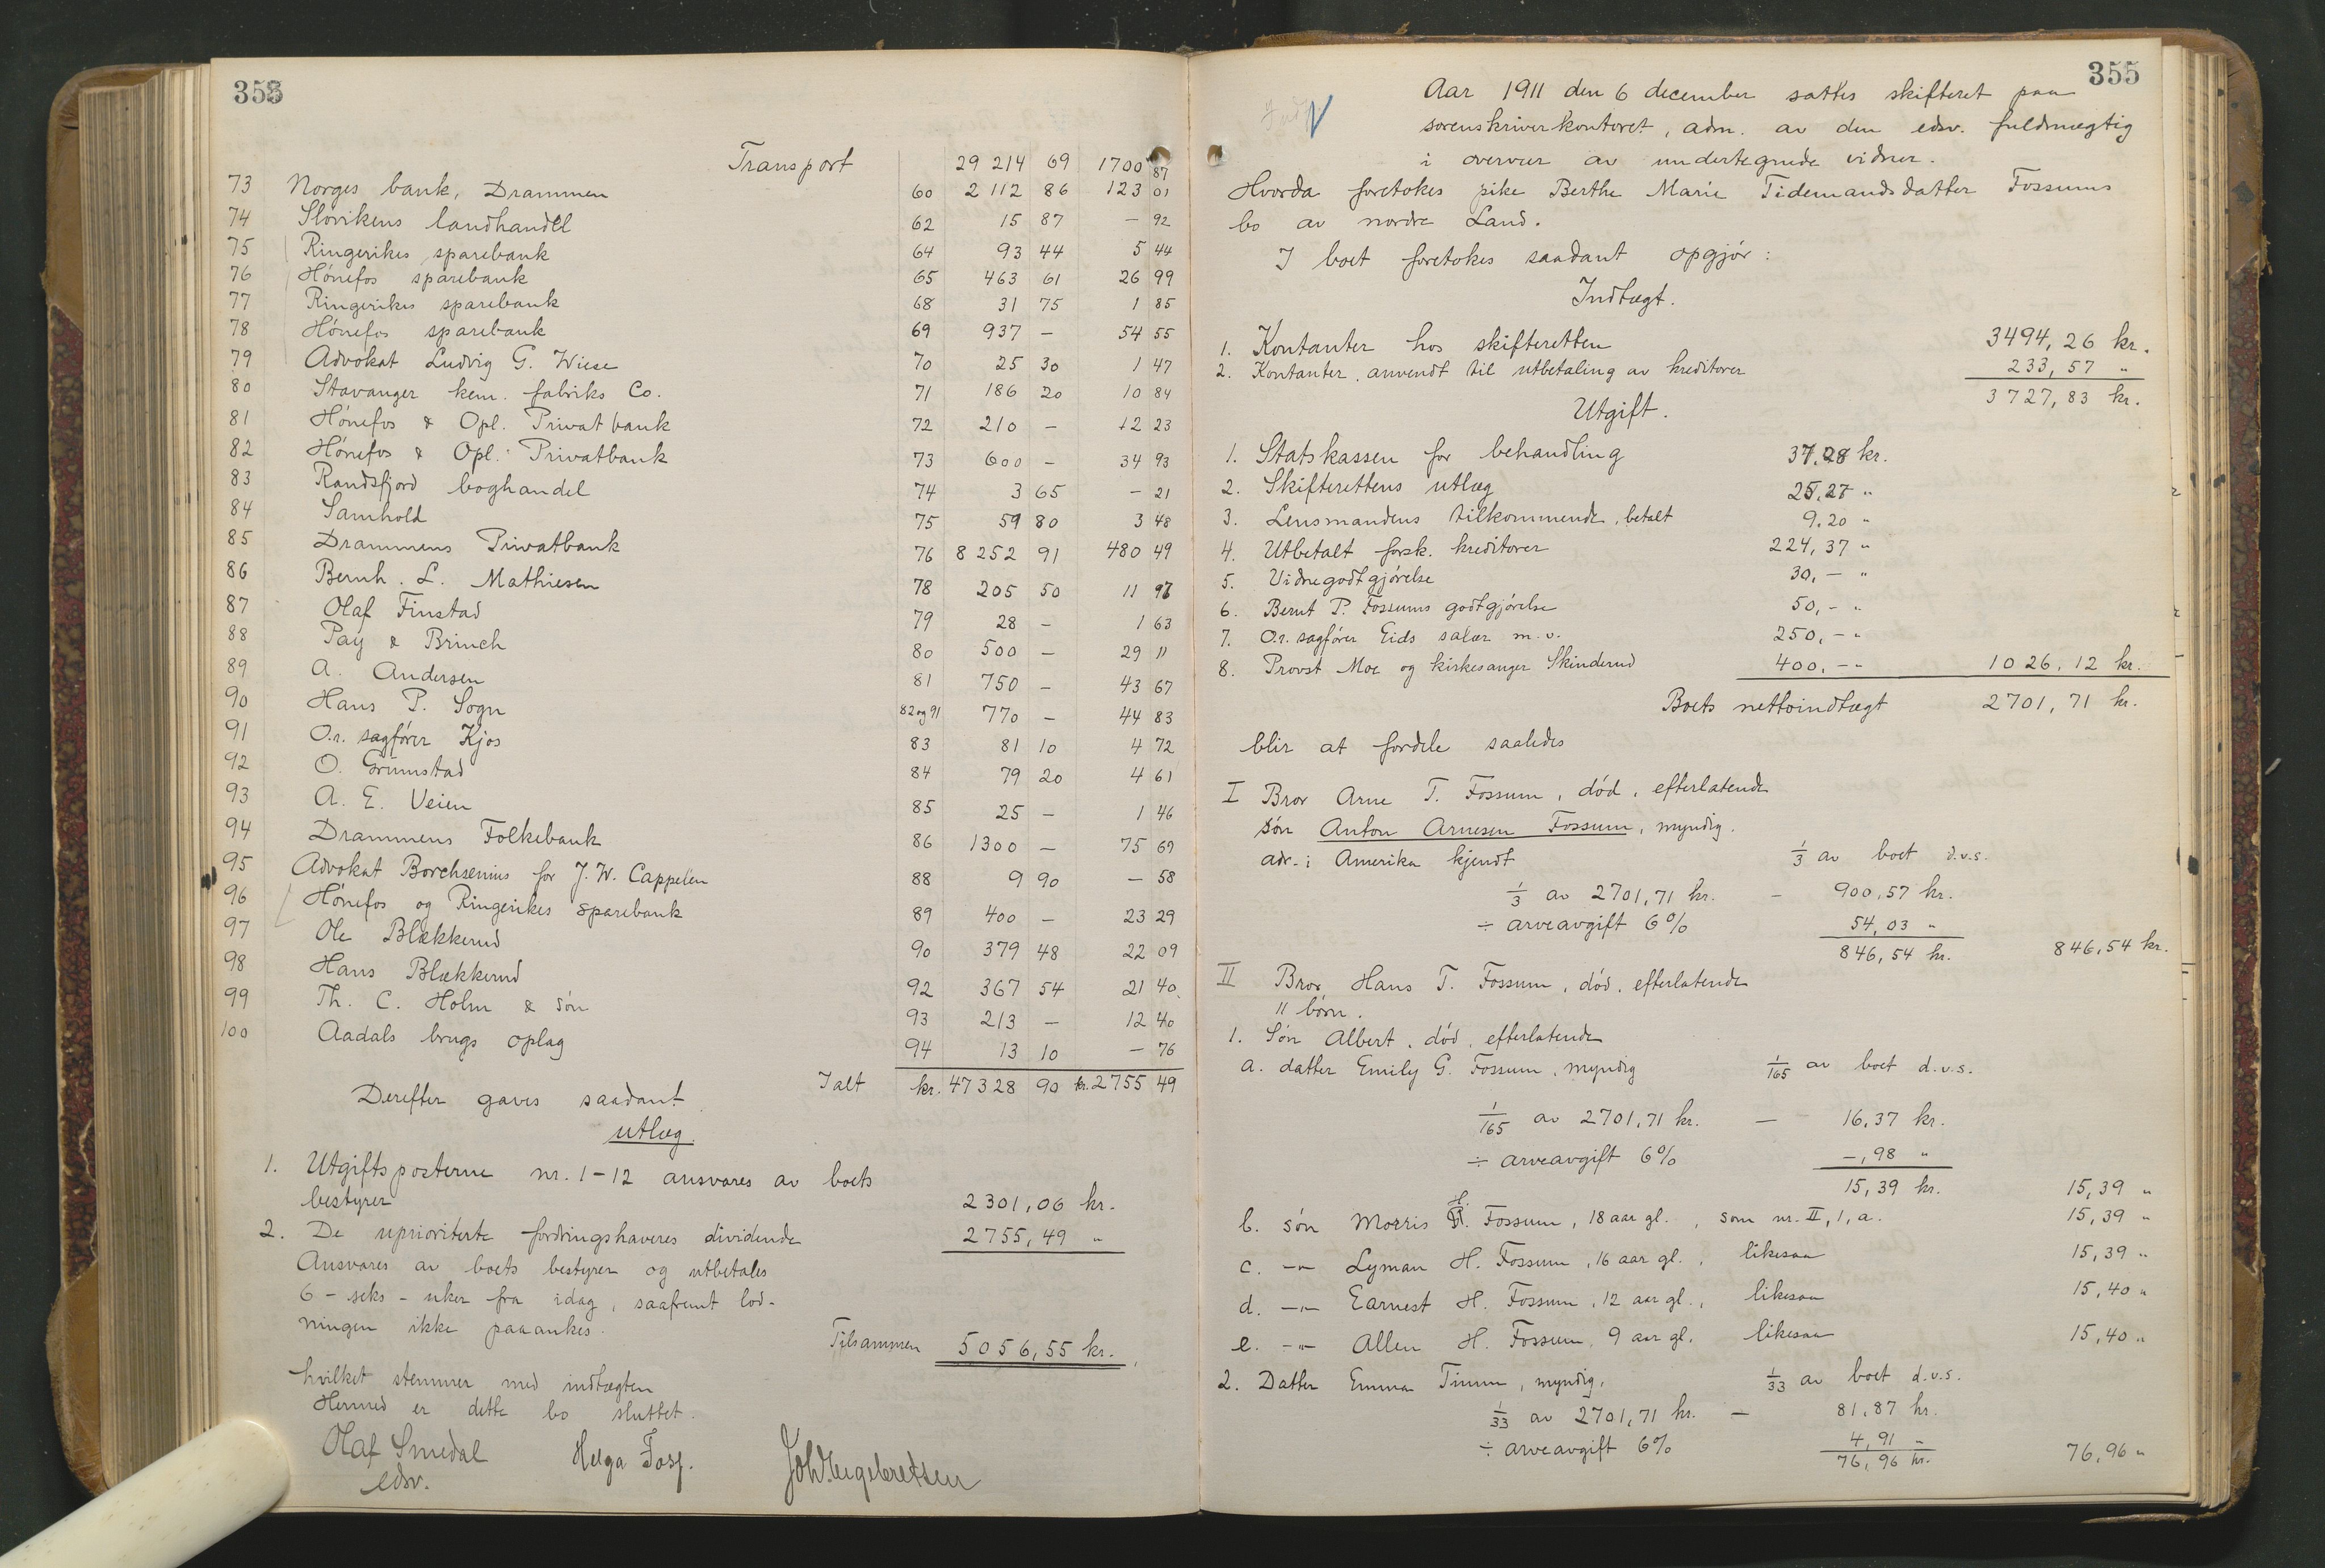 353
Transport 29 214 69 1700 87
73 Norges bank, Drammen 60 2 112 86 123 01
74 Slovikens landhandel 62 15 87 — 92
75 Ringerikes sparebank 64 93 44 5 44
76 Hønefos sparebank 65 463 61 26 99
77 Ringerikes sparebank 68 31 75 1 85
78 Hønefos sparebank 69 937 — 54 55
79 Advokat Ludvig G. Wiese 70 25 30 1 47
80 Stavanger kem. fabriks Co. 71 186 20 10 84
81 Hønefos & Opl. Privatbank 72 210 — 12 23
82 Hønefos & Opl. Privatbank 73 600 — 34 93
83 Randsfjord boghandel 74 3 65 — 21
84 Samhold 75 59 80 3 48
85 Drammens Privatbank 76 8 252 91 480 49
86 Bernh. L. Mathiesen 78 205 50 11 97
87 Olaf Finstad 79 28 — 1 63
88 Pay & Brinch 80 500 — 29 11
89 A. Andersen 81 750 — 43 67
90 Hans P. Sogn 82 og 91 770 — 44 83
91 O.r. sagfører Kjos 83 81 10 4 72
92 O. Grimstad 84 79 20 4 61
93 A. E. Veien 85 25 — 1 46
94 Drammens Folkebank 86 1300 — 75 69
95 Advokat Borchsenius for J. W. Cappelen 88 9 90 — 58
96 Hønefos og Ringerikes sparebank 89 400 — 23 29
97 Ole Blækkerud 90 379 48 22 09
98 Hans Blækkerud 92 367 54 21 40
99 Th. C. Holm & søn 93 213 — 12 40
100 Aadals brugs oplag 94 13 10 — 76
Ialt kr. 47328 90 kr. 2755 49
Derefter gaves saadant
utlæg.
1. Utgiftsposterne nr. 1-12 ansvares av boets
bestyrer 2301,06 kr.
2. De uprioriterte fordringshaveres dividende 2755,49 "
Ansvares av boets bestyrer og utbetales
6 - seks - uker fra idag, saafremt lod-
ningen ikke paaankes.
Tilsammen 5056,55 kr.
hvilket stemmer med indtægten
Hermed er dette bo sluttet.
Olaf Smedal Helga Fosf. Joh. Engebretsen
edsv.
355
Aar 1911 den 6 december sattes skifteret paa
sorenskriverkontoret, adm. av den edsv. fuldmægtig
i overvær av undertegnede vidner.
Hvorda foretokes pike Berthe Marie Tidemandsdatter Fossums
bo av nordre Land.
I boet foretokes saadant opgjør:
Indtægt.
1. Kontanter hos skifteretten 3494,26 kr.
2. Kontanter anvendt til utbetaling av kreditorer 233,57 "
3727,83 kr.
Utgift.
1. Statskassen for behandling 37,28 kr.
2. Skifterettens utlæg 25,27 "
3. Lensmandens tilkommende, betalt 9,20 "
4. Utbetalt forsk. kreditorer 224,37 "
5. Vidnegodtgjørelse 30,— "
6. Bernt P. Fossums godtgjørelse 50,— "
7. O.r. sagfører Eids salær m.v. 250,— "
8. Provst Moe og kirkesanger Skinderud 400,— " 1026,12 kr.
Boets nettoindtægt 2701,71 kr.
blir at fordele saaledes
I Bror Arne T. Fossum, død, efterlatende
søn Anton Arnesen Fossum, myndig.
adr. i Amerika kjendt 1/3 av boet d.v.s.
1/3 av 2701,71 kr. — 900,57 kr.
÷ arveavgift 6% 54,03 "
846,54 kr. 846,54 kr.
II Bror Hans T. Fossum, død, efterlatende
11 børn.
1. Søn Albert, død, efterlatende
a. datter Emily G. Fossum, myndig 1/165 av boet d.v.s.
1/165 av 2701,71 kr. — 16,37 kr.
÷ arveavgift 6% —,98 "
15,39 kr. 15,39 "
b. søn Morris H. Fossum, 18 aar gl., som nr. II, 1, a. 15,39 "
c. —"— Lyman H. Fossum, 16 aar gl., likesaa 15,39 "
d. —"— Earnest H. Fossum, 12 aar gl., likesaa 15,40 "
e. —"— Allen H. Fossum, 9 aar gl. likesaa 15,40 "
2. Datter Emma Timm, myndig, 1/33 av boet d.v.s.
1/33 av 2701,71 kr. — 81,87 kr.
÷ arveavgift 6% 4,91 "
76,96 kr. 76,96 "